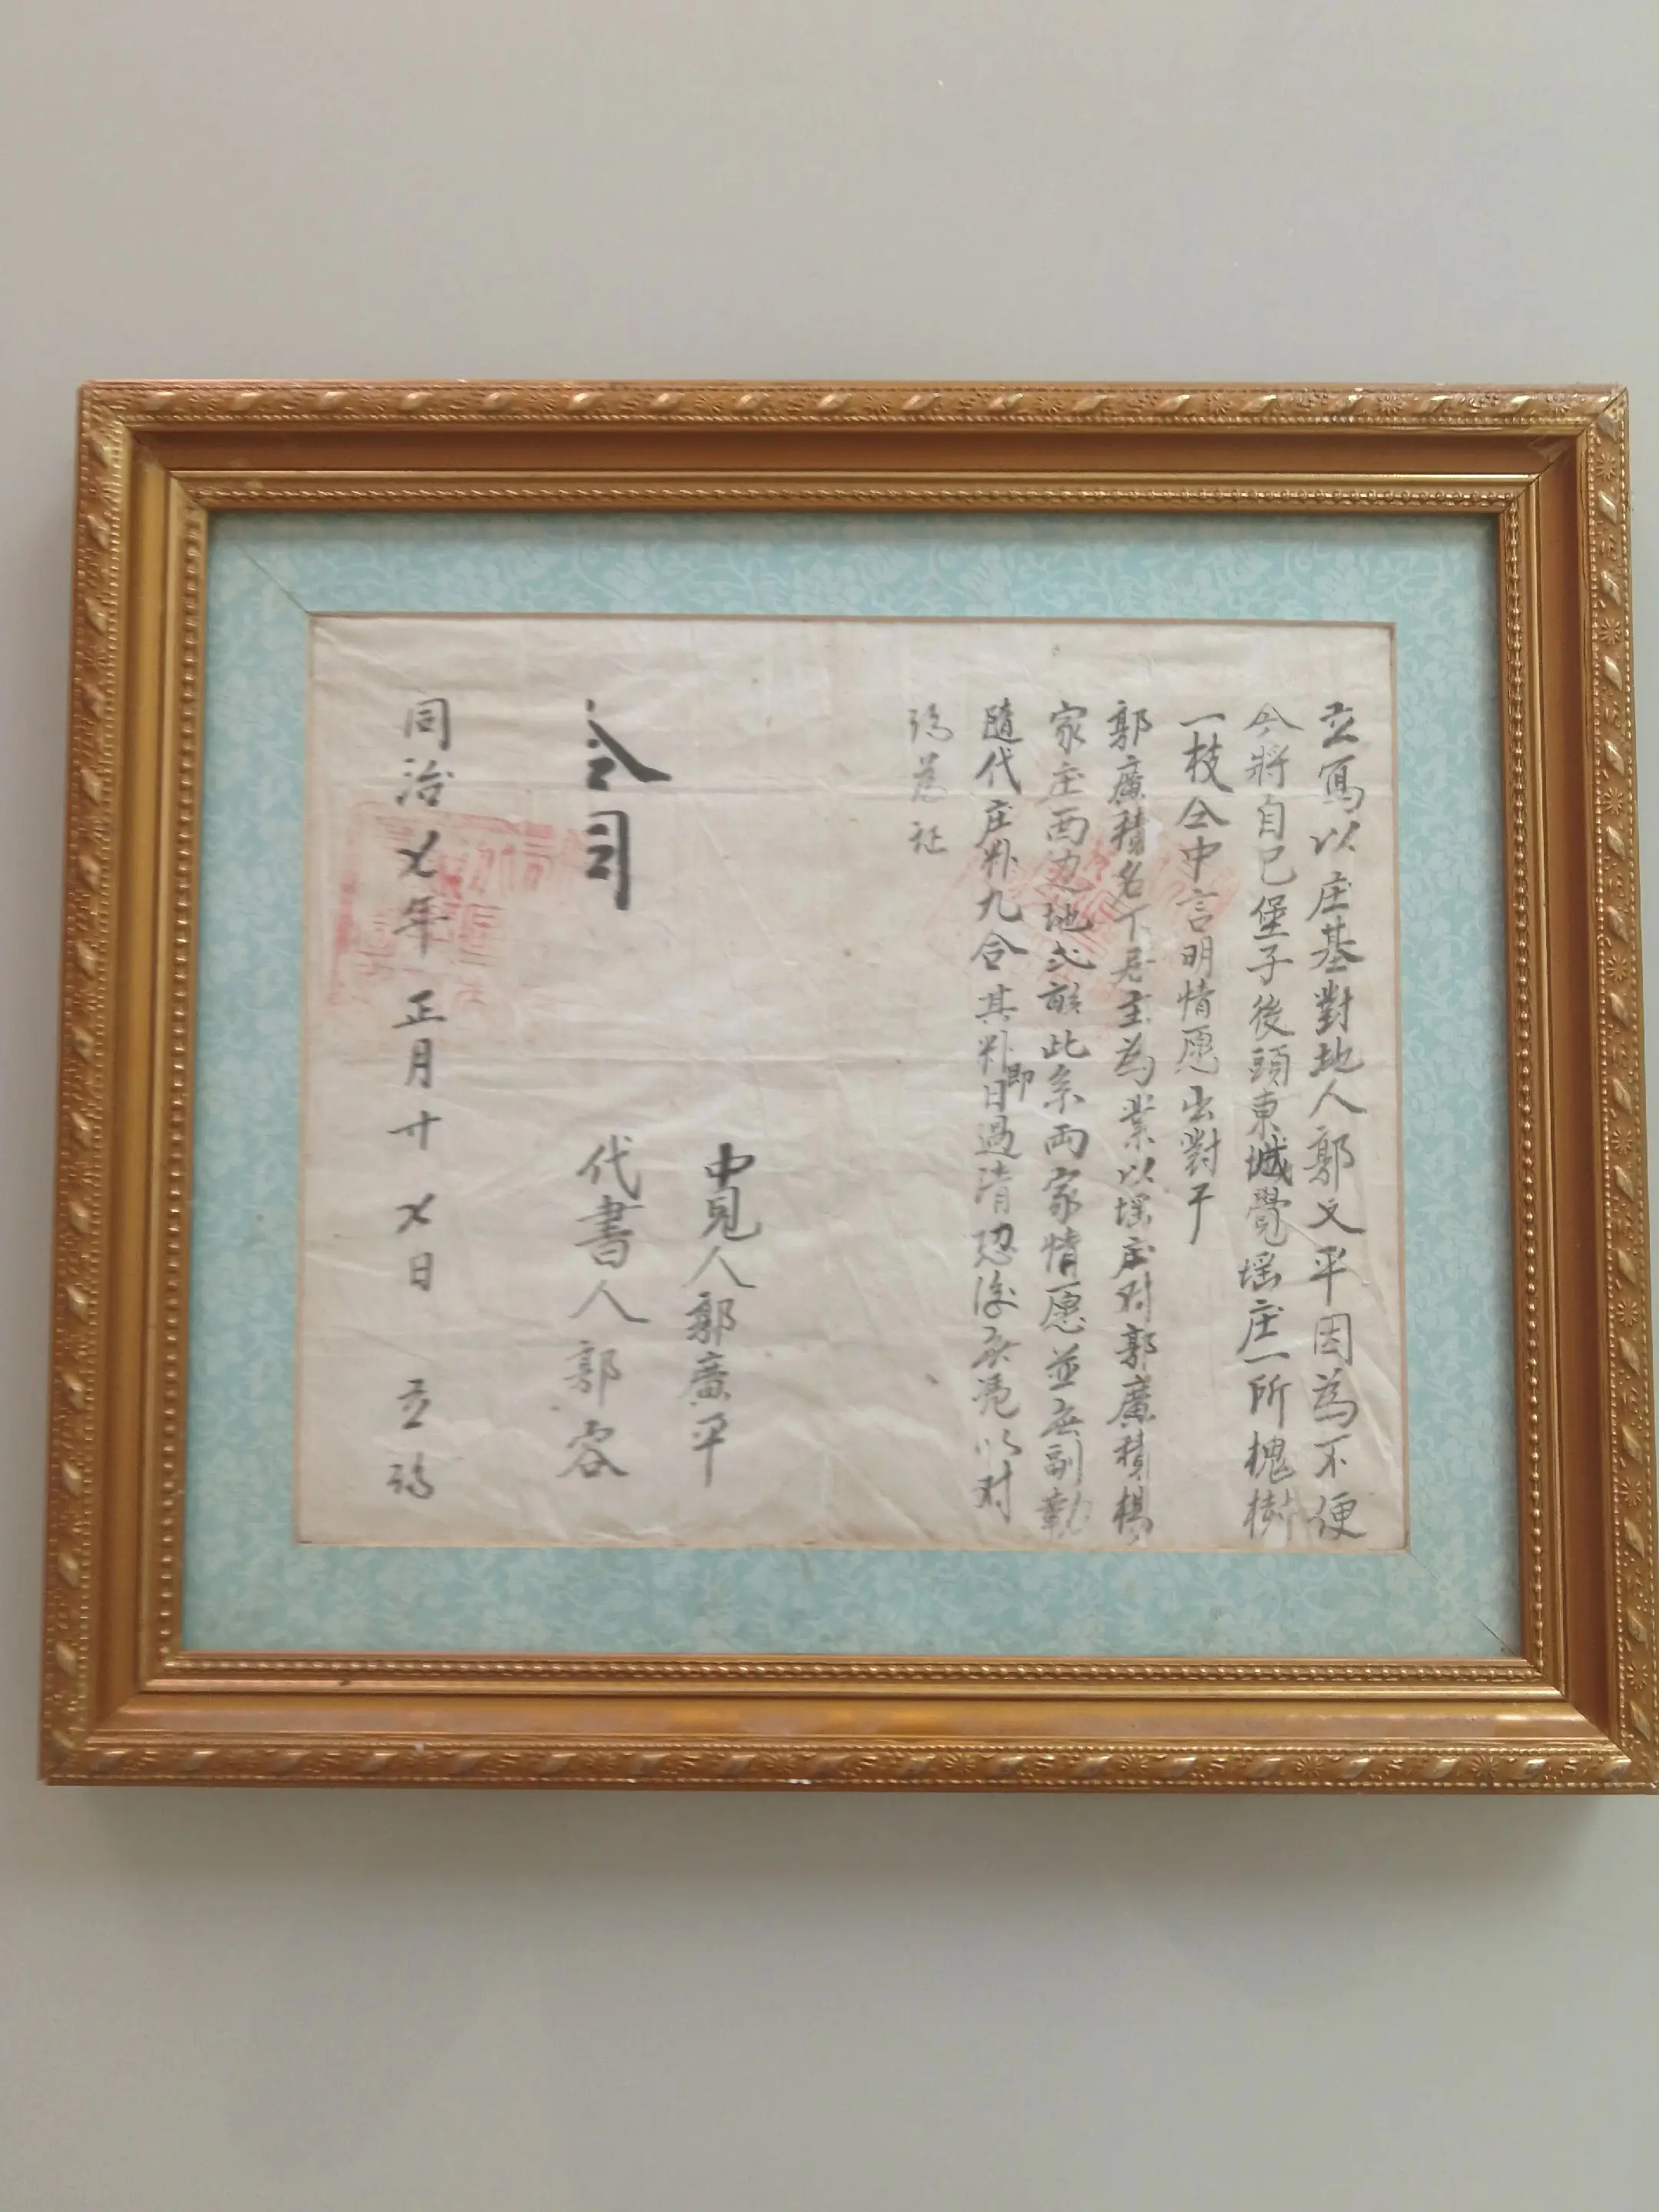 立寫以庄基對地人郭文平因為不便
今將自己堡子後頭東城覺堖庄一所槐樹
一枝仝中言明情愿出對于
郭廣積名下居主為業以堖庄对郭廣積楊
家庄西边地弍畝此系两家情愿並無副勒
隨代庄粆九合其粆即日過清恐後無凭以对
約為証
合同
中見人郭廣平
代書人郭容
同治〤年正月廿〤日 立約